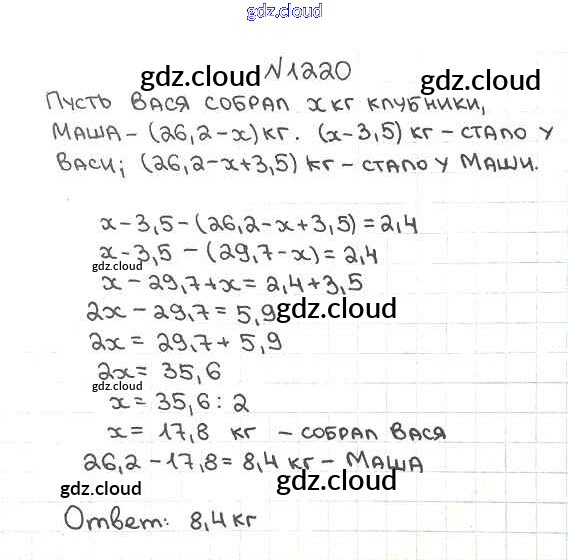 gdz.cloud
gdz.cloud №1220 gdz.cloud
Пусть Вася собрал x кг клубники,
Маша – (26,2-x) кг. (x-3,5) кг – стало у
Васи; (26,2-x+3,5) кг – стало у Маши.
x-3,5-(26,2-x+3,5)=2,4
x-3,5-(29,7-x)=2,4
gdz.cloud
x-29,7+x=2,4+3,5
2x-29,7=5,9 gdz.cloud
2x=29,7+5,9
2x=35,6
gdz.cloud
x=35,6:2
x=17,8 кг – собрал Вася
26,2-17,8=8,4 кг – Маша
gdz.cloud gdz.cloud
Ответ: 8,4 кг